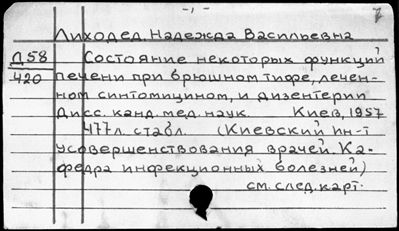 -1-
7
Лиходед, Надежда Васильевна
Д58
420
Состояние некоторых функций
печени при брюшном тифе, лечен-
ном синтомицином, и дизентерии
Дисс. канд. мед. наук. Киев, 1957
477л. с табл. (Киевский ин-т
усовершенствования врачей. Ка-
федра инфекционных болезней)
см. след. карт.